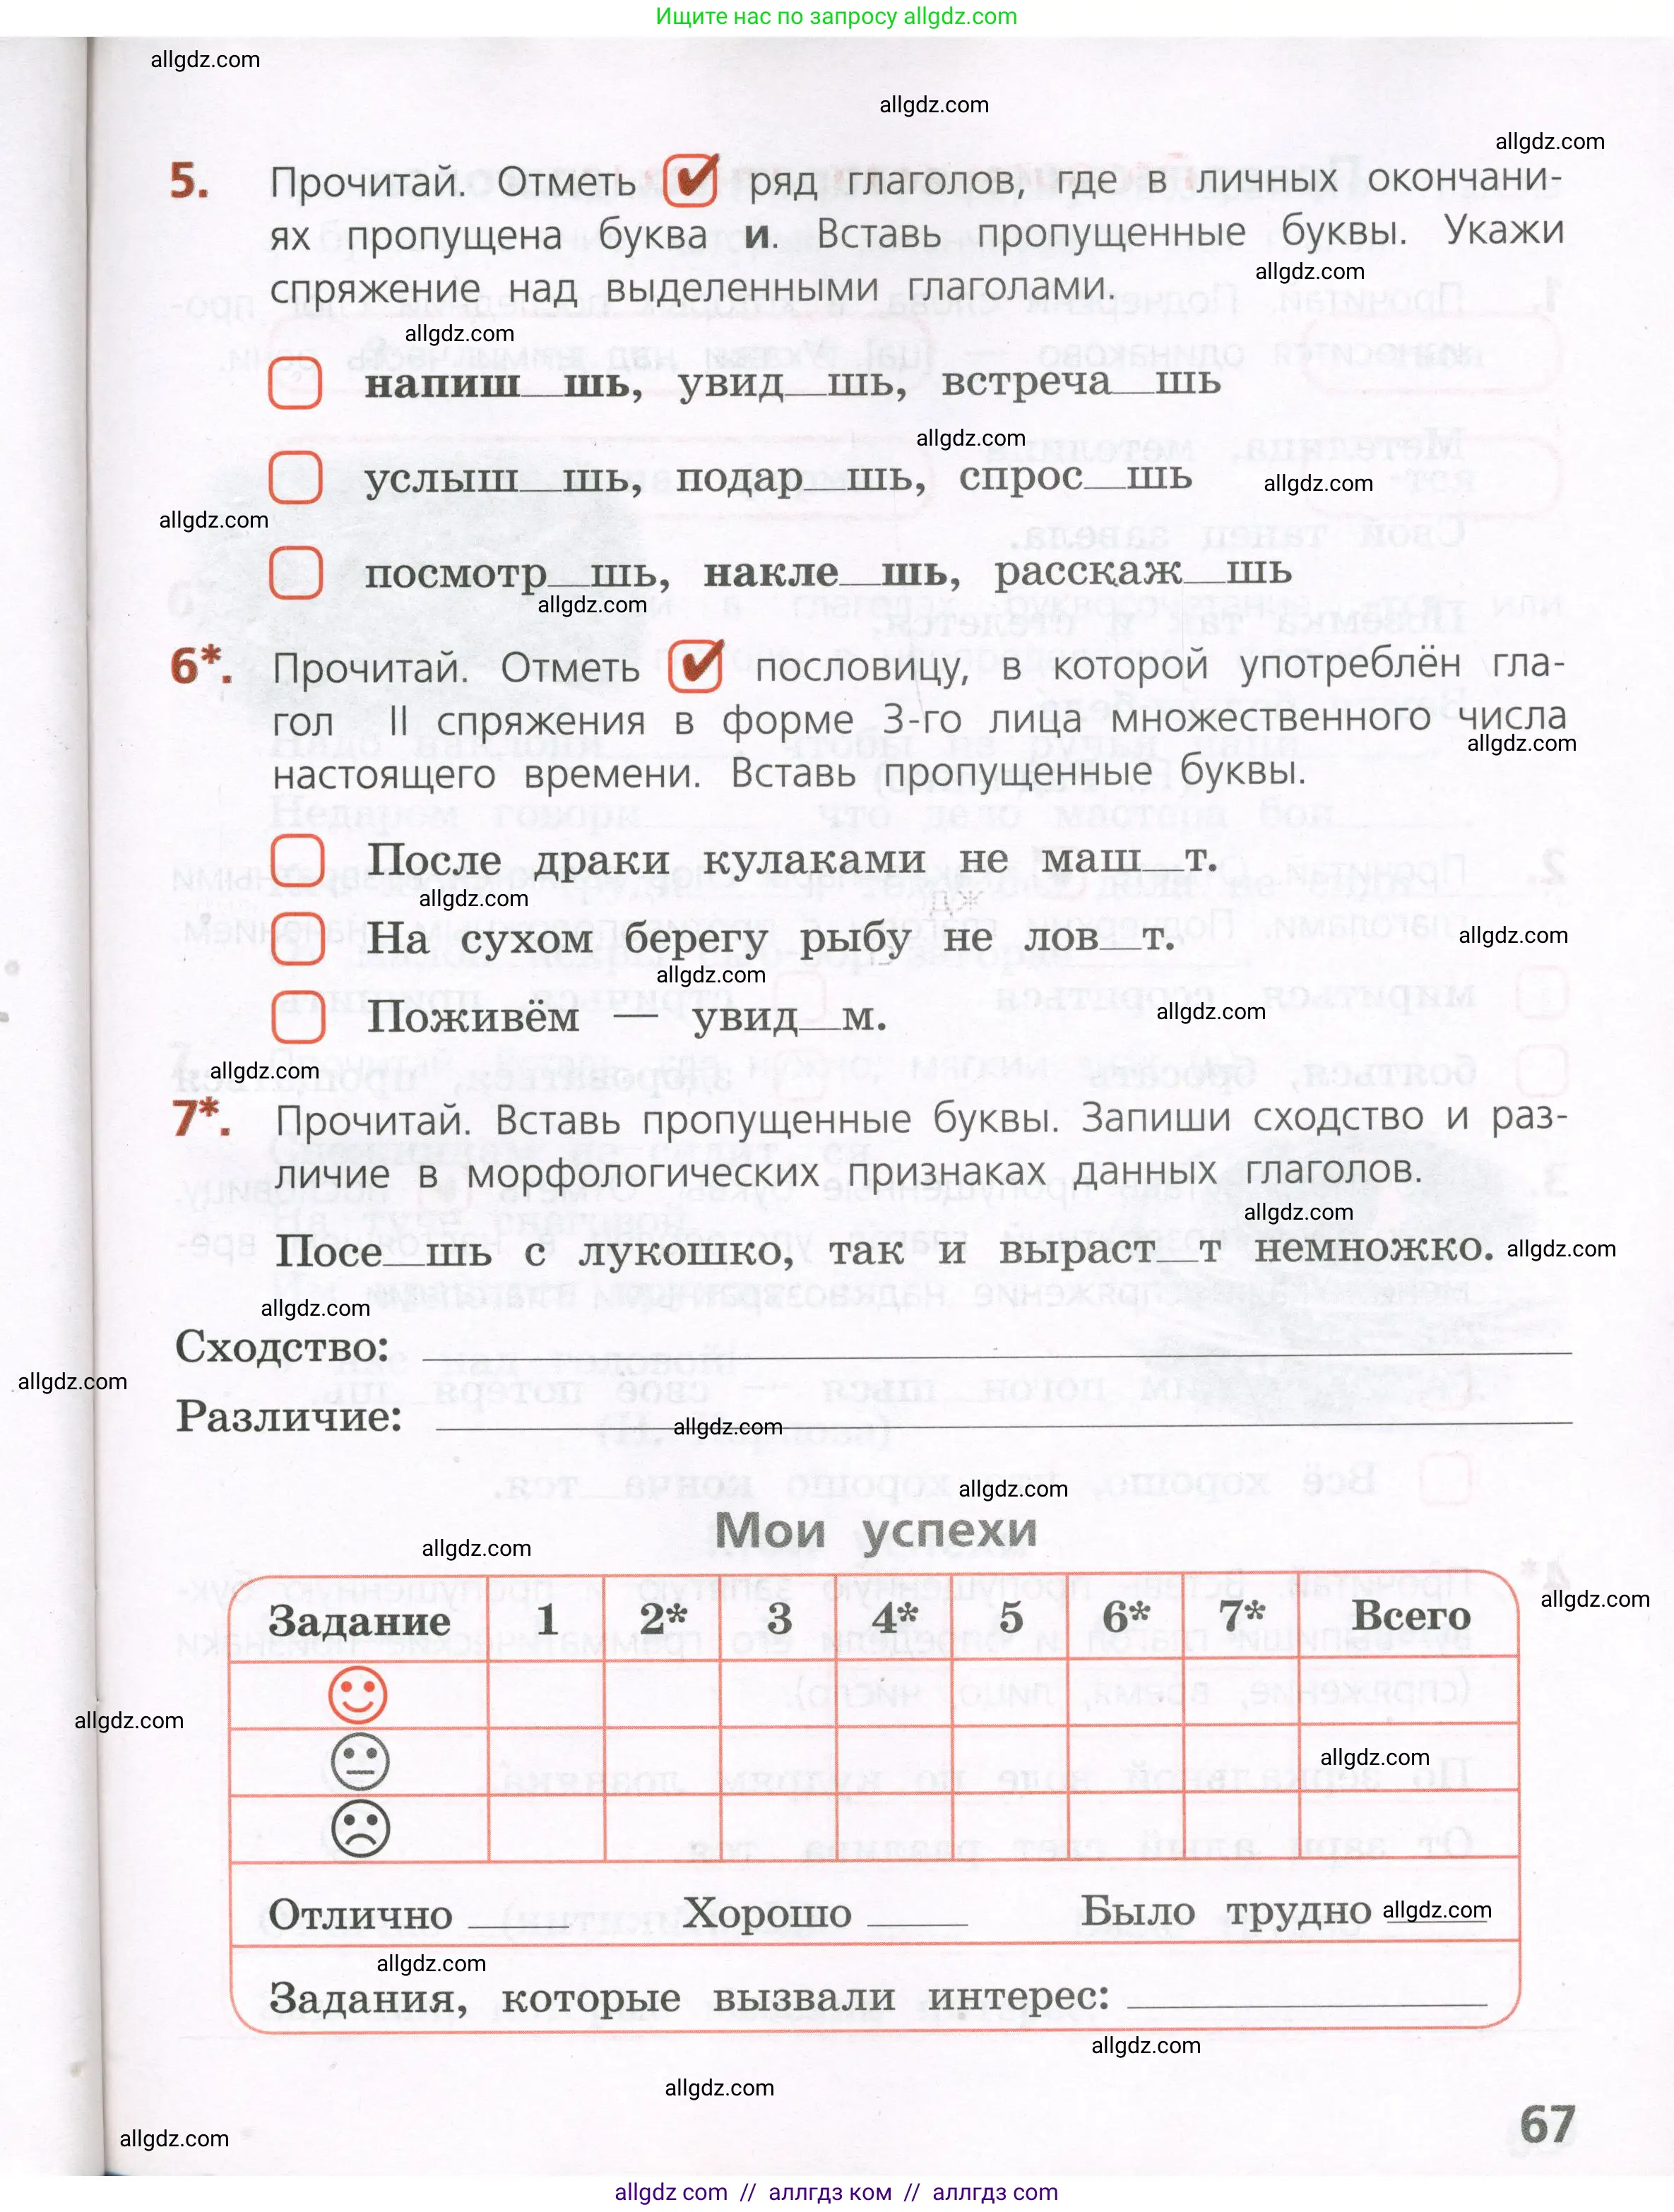 Ищите нас по запросу allgdz.com
allgdz.com
allgdz.com
allgdz.com
5. Прочитай. Отметь ✔ ряд глаголов, где в личных окончани-
ях пропущена буква и. Вставь пропущенные буквы. Укажи
спряжение над выделенными глаголами.
allgdz.com
allgdz.com
напиш__шь, увид__шь, встреча__шь
allgdz.com
услыш__шь, подар__шь, спрос__шь
allgdz.com
allgdz.com
посмотр__шь, накле__шь, расскаж__шь
allgdz.com
6*. Прочитай. Отметь ✔ пословицу, в которой употреблён гла-
гол II спряжения в форме 3-го лица множественного числа
allgdz.com
настоящего времени. Вставь пропущенные буквы.
После драки кулаками не маш__т.
allgdz.com
На сухом берегу рыбу не лов__т.
allgdz.com
allgdz.com
Поживём — увид__м.
allgdz.com
allgdz.com
7*. Прочитай. Вставь пропущенные буквы. Запиши сходство и раз-
личие в морфологических признаках данных глаголов.
allgdz.com
Посе__шь с лукошко, так и выраст__т немножко.
allgdz.com
allgdz.com
Сходство:
allgdz.com
Различие:
allgdz.com
allgdz.com
Мои успехи
allgdz.com
Задание 1 2* 3 4* 5 6* 7* Всего
allgdz.com
allgdz.com
allgdz.com
Отлично ____ Хорошо ____ Было трудно ____
allgdz.com
allgdz.com
Задания, которые вызвали интерес:
allgdz.com
allgdz.com
67
allgdz.com
allgdz com // аллгдз ком // аллгдз com